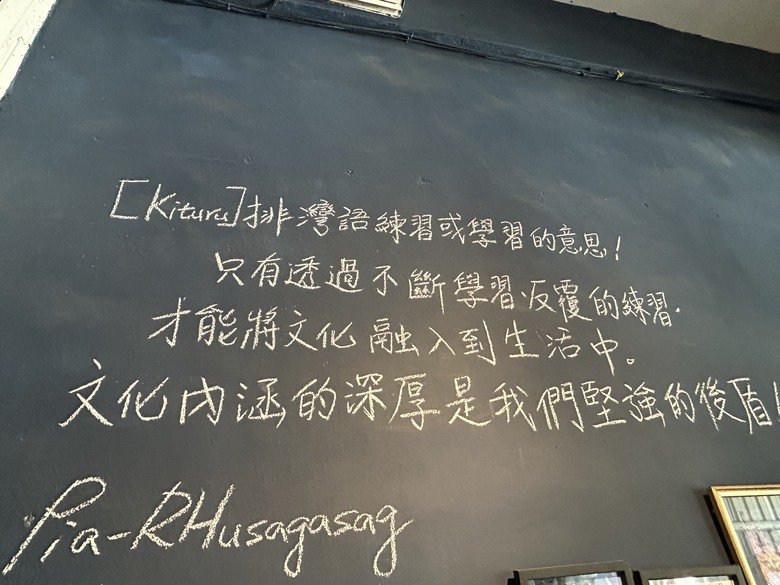 [Kituru]排灣語練習或學習的意思!
只有透過不斷學習反覆的練習.
才能將文化融入到生活中。
文化內涵的深厚是我們堅強的後盾!
Pia-RHusagasag